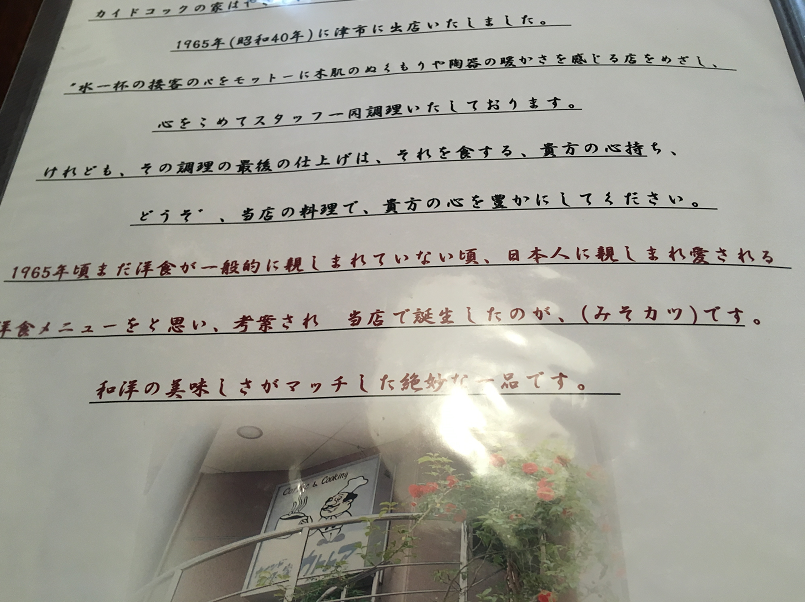 カイドコックの家は
1965年(昭和40年)に津市に出店いたしました。
"水一杯の接客の心をモットーに木肌のぬくもりや陶器の暖かさを感じる店をめざし、
心をこめてスタッフ一同調理いたしております。
けれども、その調理の最後の仕上げは、それを食する、貴方の心持ち、
どうぞ"、当店の料理で、貴方の心を豊かにしてください。
1965年頃まだ洋食が一般的に親しまれていない頃、日本人に親しまれ愛される
洋食メニューをと思い、考案され 当店で誕生したのが、(みそカツ)です。
和洋の美味しさがマッチした絶妙な一品です。
Coffee & Cooking
カトレア